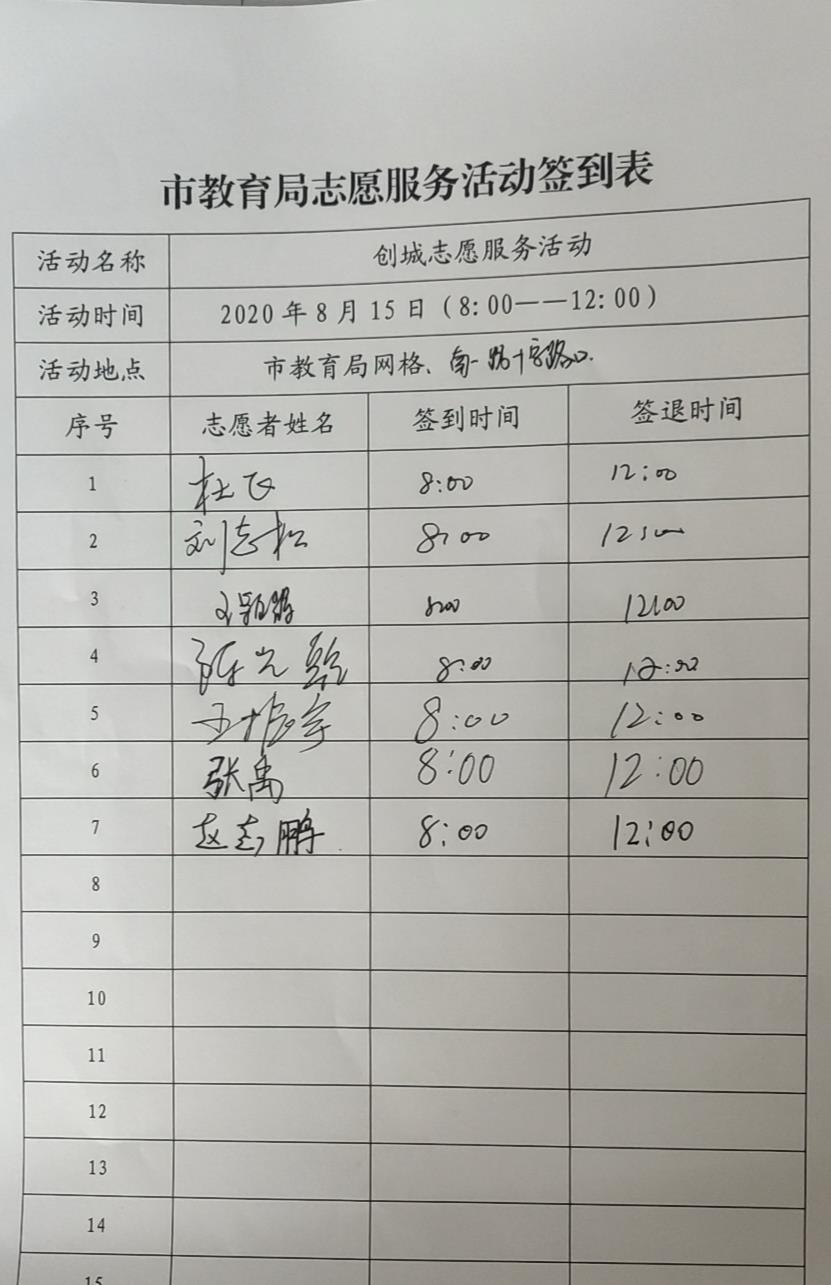 市教育局志愿服务活动签到表
活动名称 创城志愿服务活动
活动时间 2020年8月15日（8:00——12:00）
活动地点 市教育局网格、南一路十字路口.
序号 志愿者姓名 签到时间 签退时间
1 杜飞 8:00 12:00
2 刘志松 8:00 12:00
3 8:00 12:00
4 8:00 12:00
5 8:00 12:00
6 张禹 8:00 12:00
7 赵志鹏 8:00 12:00
8
9
10
11
12
13
14
15